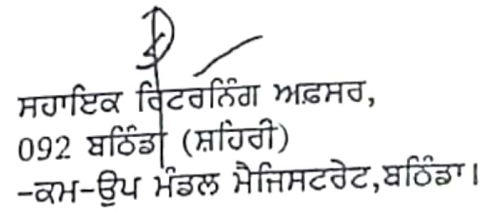 ਸਹਾਇਕ ਰਿਟਰਨਿੰਗ ਅਫ਼ਸਰ,
092 ਬਠਿੰਡਾ (ਸ਼ਹਿਰੀ)
-ਕਮ-ਉਪ ਮੰਡਲ ਮੈਜਿਸਟਰੇਟ,ਬਠਿੰਡਾ।